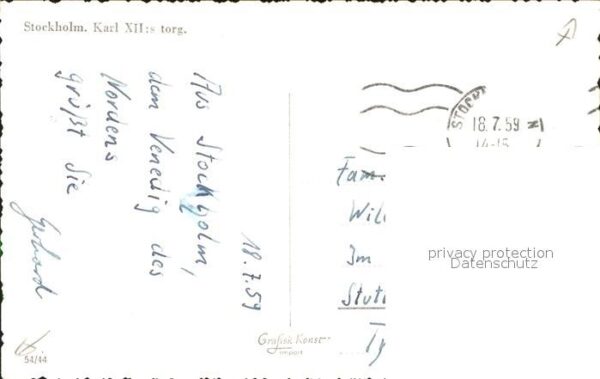 Stockholm. Karl XII:s torg.
18.7.59
Aus Stockholm,
dem Venedig des
Nordens
grüßt Sie
Gerhard
STOCK
18.7.59
14-15
Fam.
Wil
Im
Stut
Ty
privacy protection
Datenschutz
Grafisk Konst
54/44